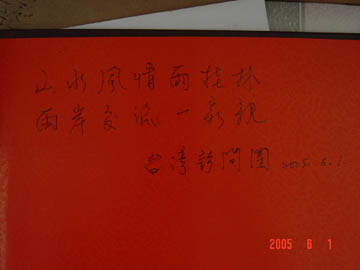 山水風情雨桂林
兩岸交流一家親
台灣訪問團 2005.6.1.
2005 6 1